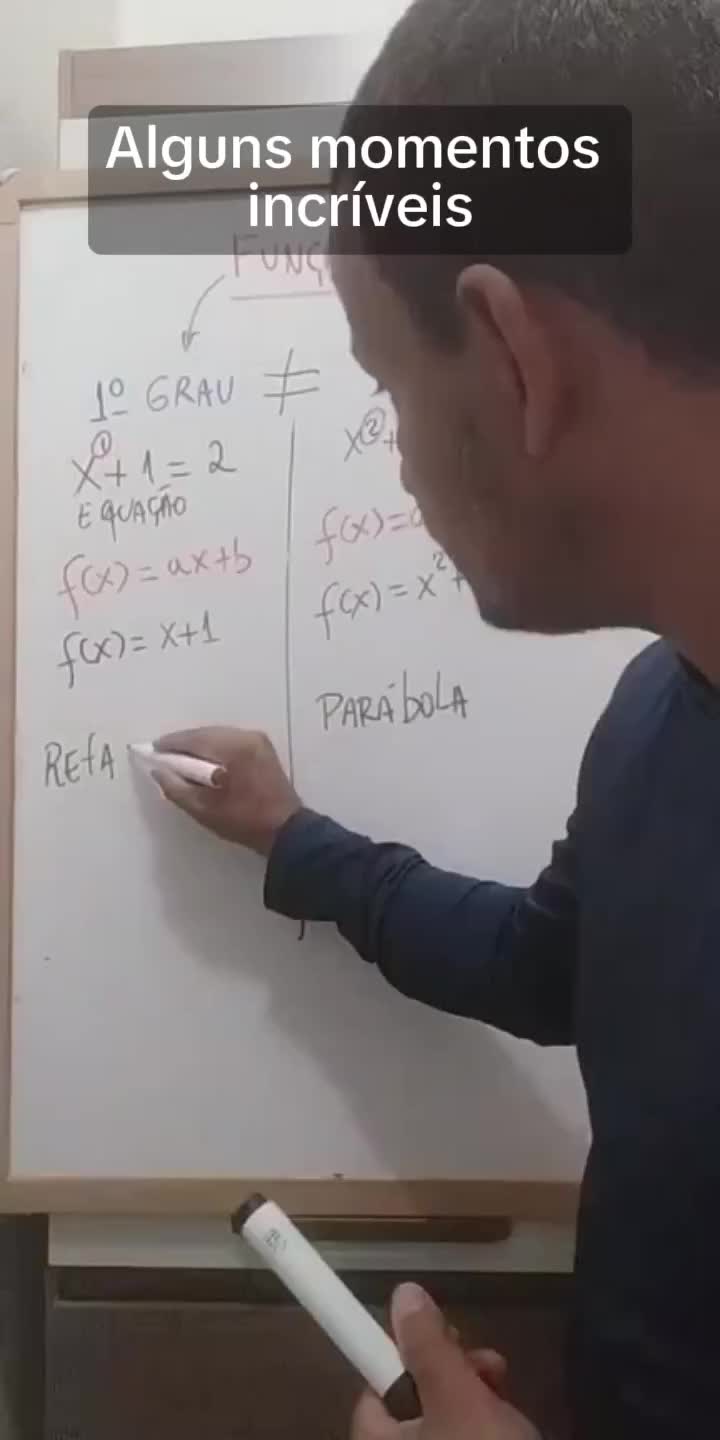 Alguns momentos
incríveis
FUNÇ
1º GRAU ≠
x①+1=2
EQUAÇÃO
f(x)=ax+b
f(x)=x+1
RETA
x②+
f(x)=a
f(x)=x²+
PARÁBOLA